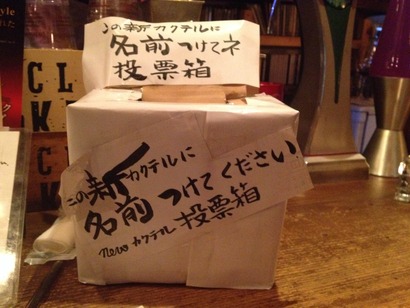 この新カクテルに
名前つけてネ
投票箱
この新カクテルに
名前つけてください!
newカクテル投票箱
CL
K
yle